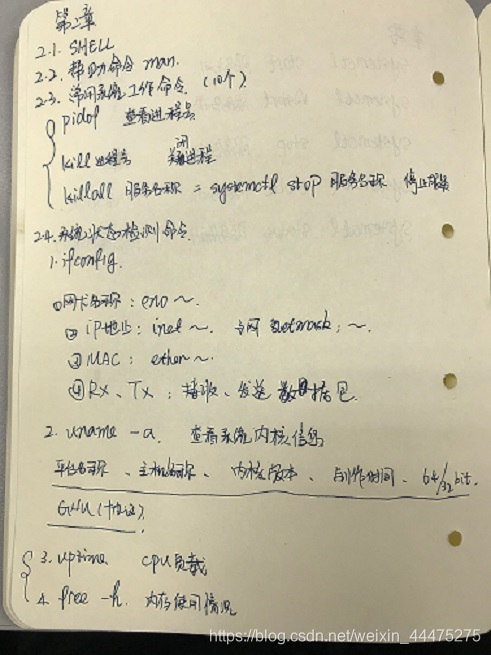 第二章
2.1. SHELL
2.2. 帮助命令 man.
2.3. 常用系统工作命令. (10个)
pidof 查看进程号
kill 进程号 关闭进程
killall 服务名称 = systemctl stop 服务名称 停止服务
2.4. 系统状态检测命令.
1. ifconfig.
①网卡名称: eno ~.
② iP地址: inet ~. 子网 netmask: ~.
③ MAC: ether ~.
④ RX、TX: 接收、发送 数据包.
2. uname -a. 查看系统内核信息
平台名称、主机名称、内核版本、制作时间、64/32 bit.
GNU (协议).
3. uptime CPU负载
4. free -h. 内存使用情况
https://blog.csdn.net/weixin_44475275